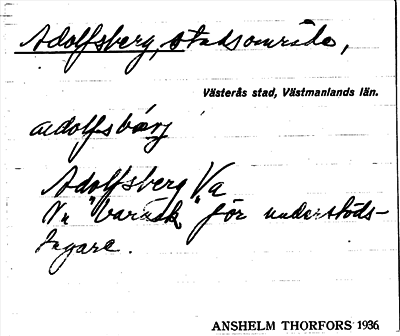 Adolfsberg, stadsområde,
Västerås stad, Västmanlands län.
adolfsbärj
Adolfsberg Va
"barack" för understöds-
tagare.
ANSHELM THORFORS 1936